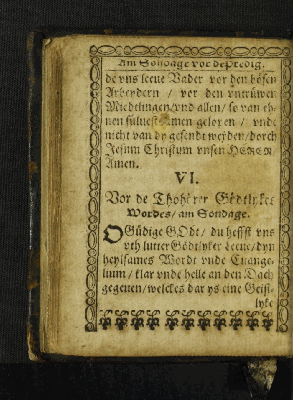 Am Sondage vor de Predig.
de vns leeue Vader vor den bösen
Arbeydern / vor den vntrüwen
Miedelingen / vnd allen / so van eh-
nen sülvest amen geloren / vnde
nicht van dy gesendt werden / dorch
Jesum Christum vnsen HEREN
Amen.
VI.
Vor de Thohörer Gödtlykes
Wordes / am Sondage.
O Güdige GOdt / du heffst vns
vth lutter Gödtlyker leeue / dyn
heylsames Wordt vnde Euange-
lium / klar vnde helle an den Dach
gegeuen / welckes dar ys eine Geist-
lyke